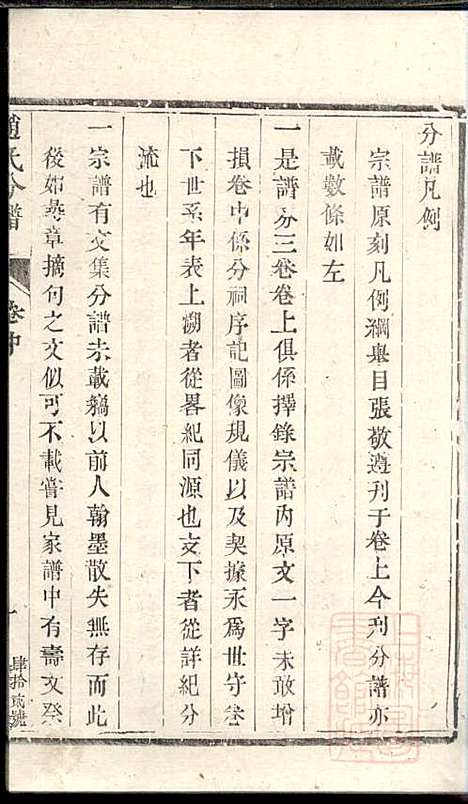 分譜凡例
宗譜原刻凡例綱舉目張敬遵刊于卷上今刊分譜亦
載數條如左
一是譜分三卷卷上俱係擇錄宗譜內原文一字未敢增
損卷中係分祠序記圖像規儀以及契據永爲世守卷
下世系年表上溯者從畧紀同源也支下者從詳紀分
流也
一宗譜有文集分譜未載緣以前人翰墨散失無存而此
後如尋章摘句之文似可不載嘗見家譜中有壽文祭
趙氏分譜
卷中
一
肆拾貳號